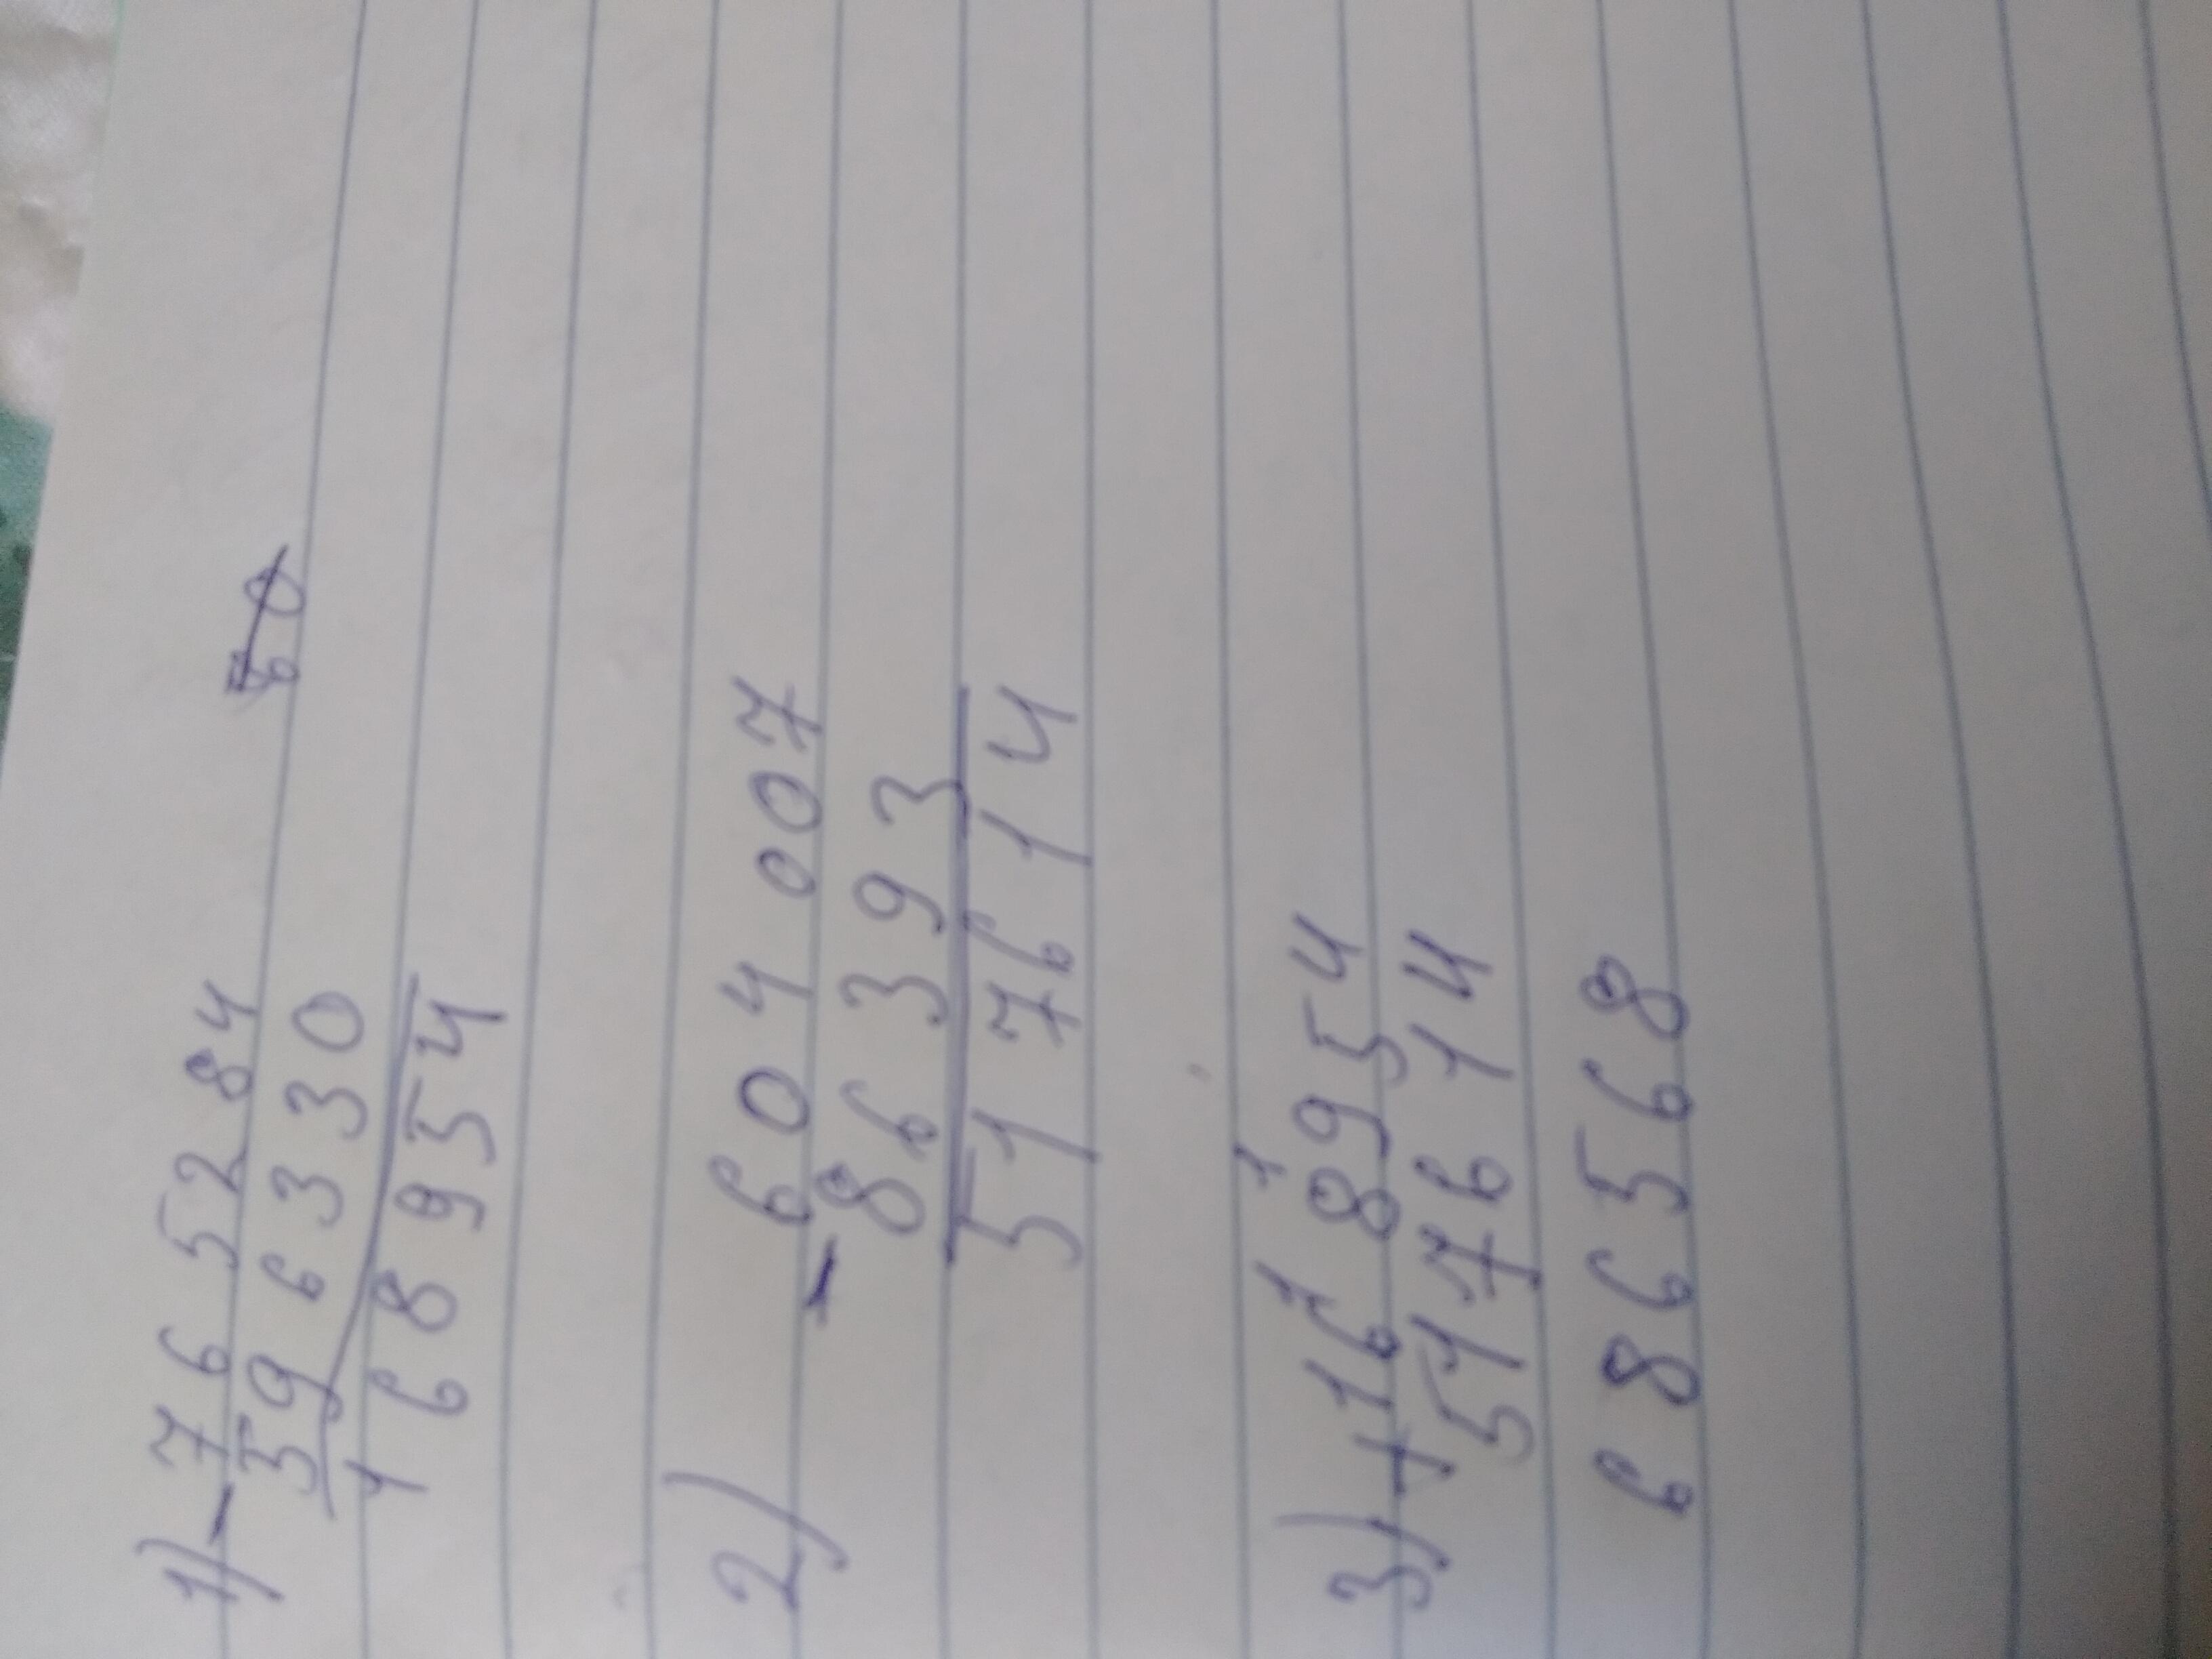 1) - 765284 6̶0̶
596330
168954
2) - 604007
86393
517614
3) + 168954
517614
686568